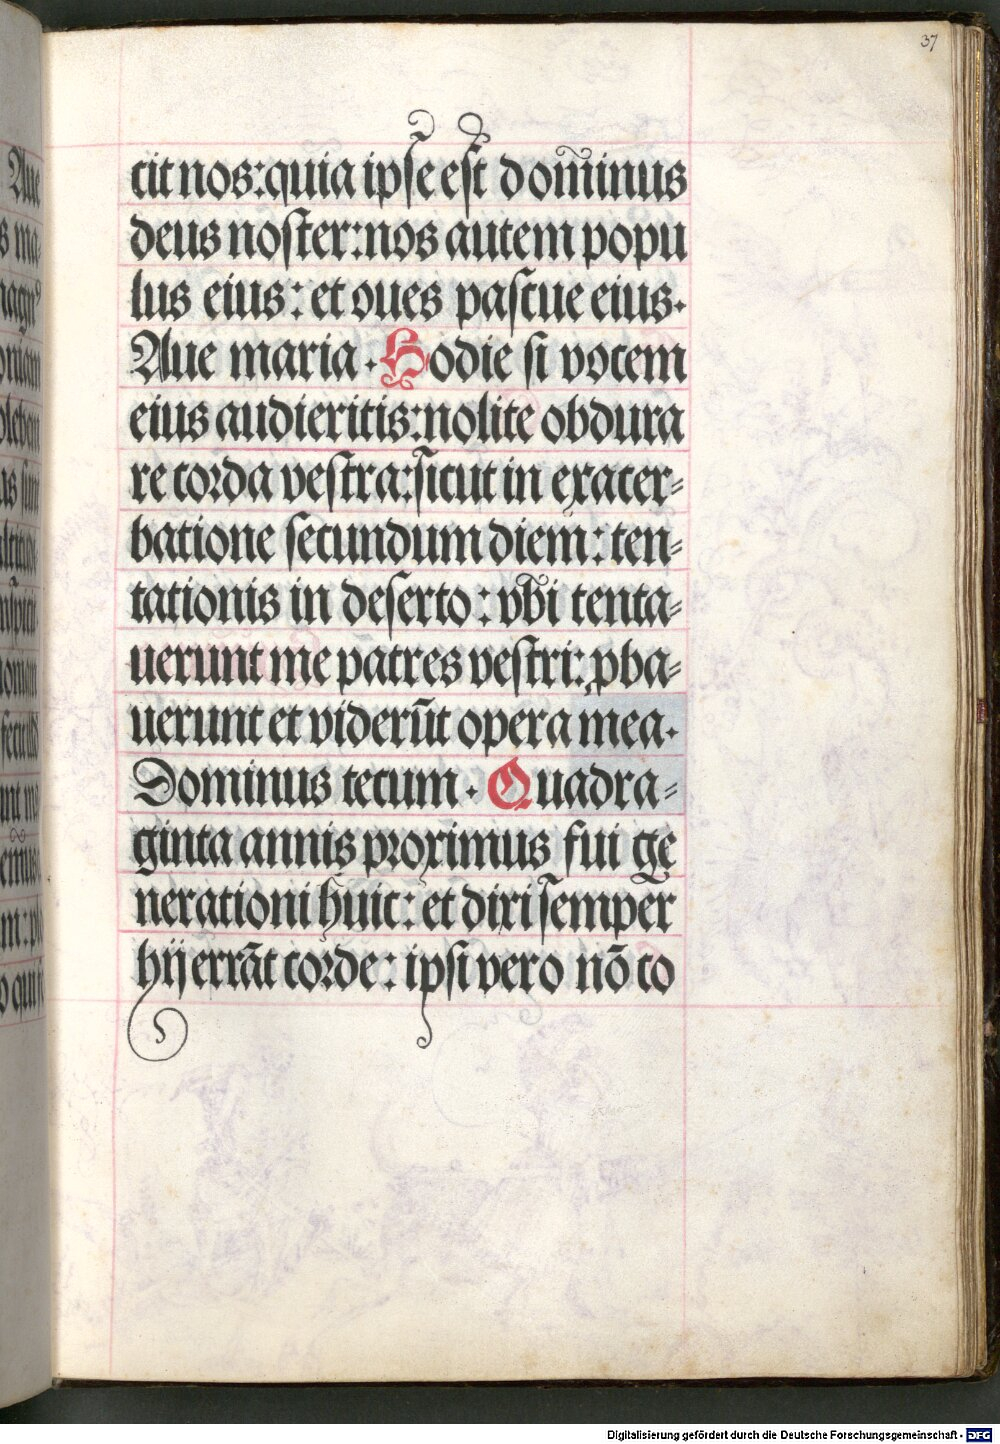 37
cit nos:quia ipſe eſt dom̃inus
deus noſter:nos autem popu
lus eius: et oues paſcue eius.
Aue maria. Hodie ſi vocem
eius audieritis:nolite obdura
re corda veſtra:ſicut in exacer⸗
batione ſecundum diem: ten⸗
tationis in deſerto: vbi tenta⸗
uerunt me patres veſtri: ꝓba⸗
uerunt et viderūt opera mea.
Dominus tecum. Quadra⸗
ginta annis proximus fui ge
nerationi huic: et dixi ſemper
hij errāt corde: ipſi vero nō co
Digitalisierung gefördert durch die Deutsche Forschungsgemeinschaft - DFG